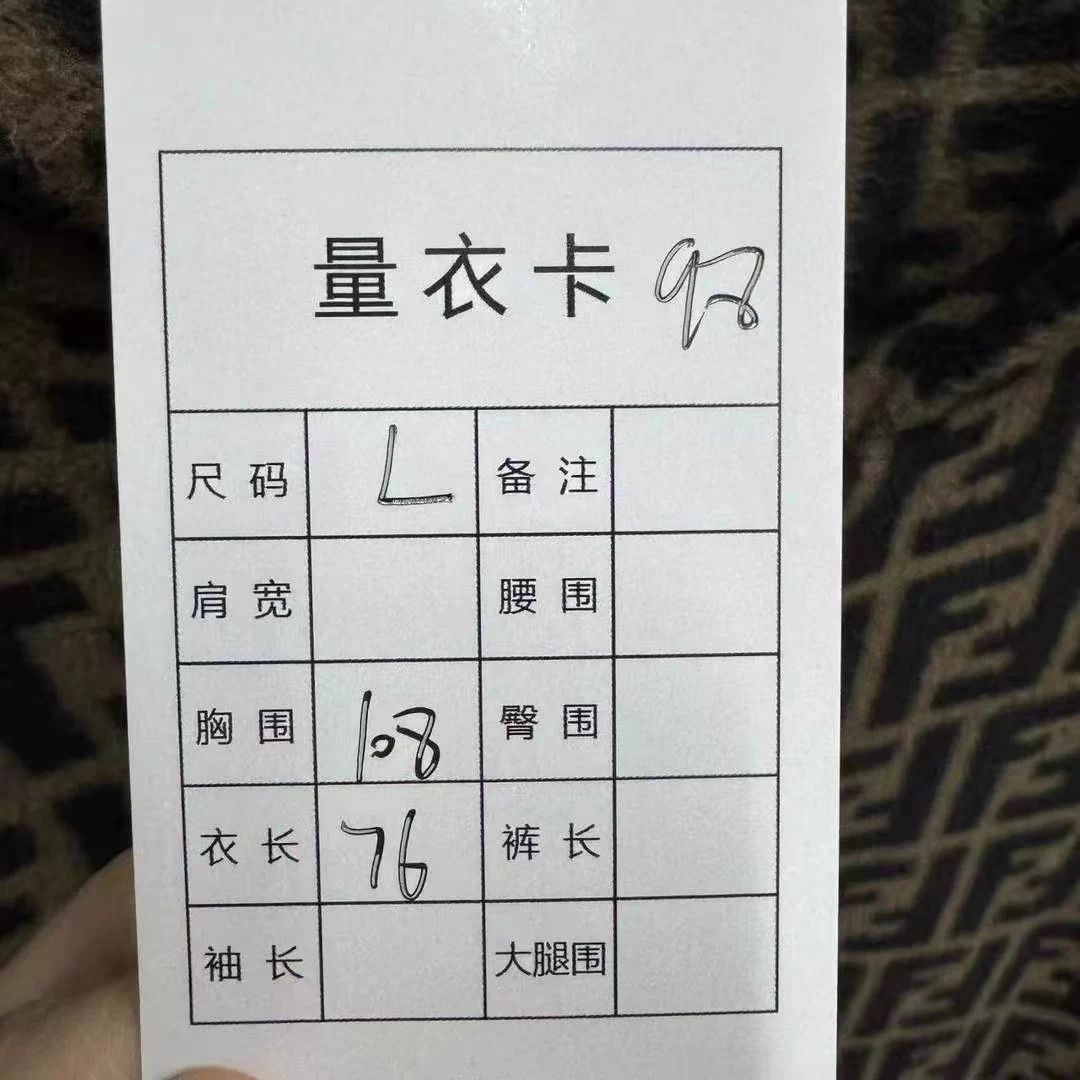 量衣卡 98
尺码 L 备注
肩宽 腰围
胸围 108 臀围
衣长 76 裤长
袖长 大腿围